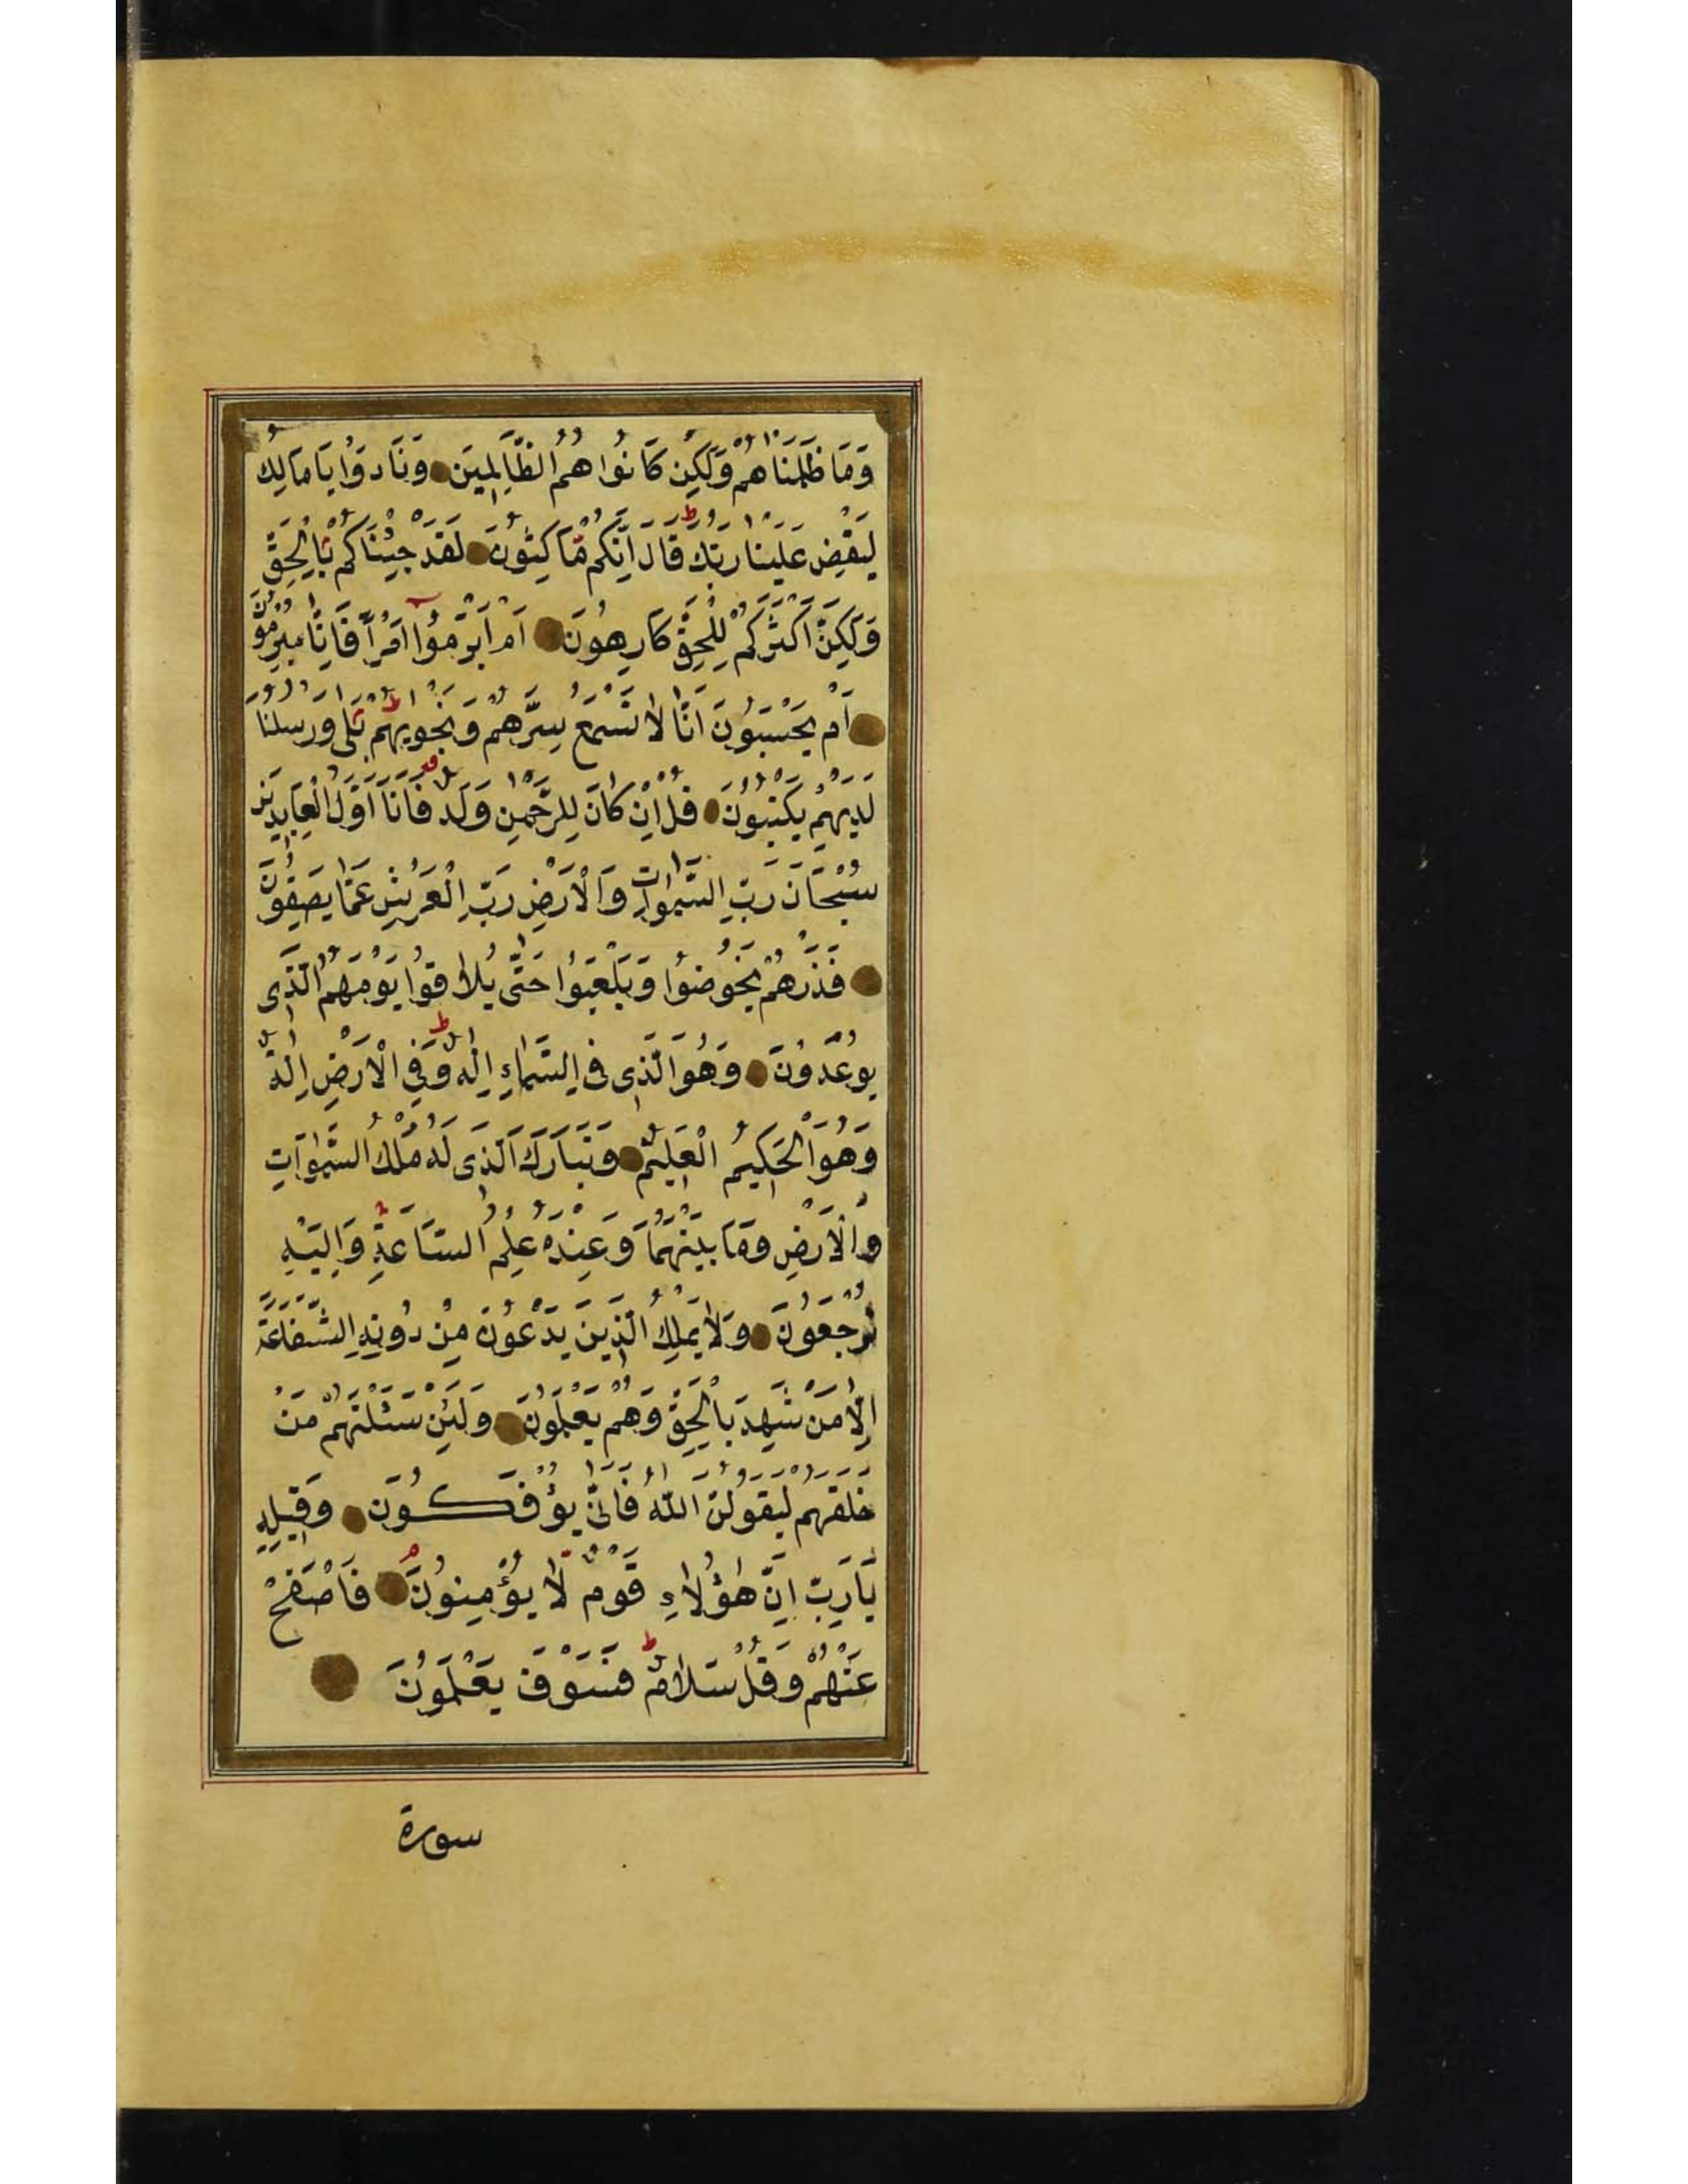 وَمَا ظَلَمْنَاهُمْ وَلَكِن كَانُوا هُمُ الظَّالِمِينَ وَنَادَوْا يَا مَالِكُ
لِيَقْضِ عَلَيْنَا رَبُّكَ قَالَ اِنَّكُم مَّاكِثُونَ لَقَدْ جِئْنَاكُم بِالْحَقِّ
وَلَكِنَّ اَكْثَرَكُمْ لِلْحَقِّ كَارِهُونَ اَمْ اَبْرَمُوا اَمْرًا فَاِنَّا مُبْرِمُونَ
اَمْ يَحْسَبُونَ اَنَّا لَا نَسْمَعُ سِرَّهُمْ وَنَجْوٰيهُمْ بَلٰى وَرُسُلُنَا
لَدَيْهِمْ يَكْتُبُونَ قُلْ اِنْ كَانَ لِلرَّحْمٰنِ وَلَدٌ فَاَنَا اَوَّلُ الْعَابِدِينَ
سُبْحَانَ رَبِّ السَّمٰوَاتِ وَالْاَرْضِ رَبِّ الْعَرْشِ عَمَّا يَصِفُونَ
فَذَرْهُمْ يَخُوضُوا وَيَلْعَبُوا حَتّٰى يُلَاقُوا يَوْمَهُمُ الَّذِى
يُوعَدُونَ وَهُوَ الَّذِى فِى السَّمَاءِ اِلٰهٌ وَفِى الْاَرْضِ اِلٰهٌ
وَهُوَ الْحَكِيمُ الْعَلِيمُ وَتَبَارَكَ الَّذِى لَهُ مُلْكُ السَّمٰوَاتِ
وَالْاَرْضِ وَمَا بَيْنَهُمَا وَعِنْدَهُ عِلْمُ السَّاعَةِ وَاِلَيْهِ
تُرْجَعُونَ وَلَا يَمْلِكُ الَّذِينَ يَدْعُونَ مِنْ دُونِهِ الشَّفَاعَةَ
اِلَّا مَنْ شَهِدَ بِالْحَقِّ وَهُمْ يَعْلَمُونَ وَلَئِنْ سَئَلْتَهُمْ مَنْ
خَلَقَهُمْ لَيَقُولُنَّ اللّٰهُ فَاَنّٰى يُؤْفَكُونَ وَقِيلِهِ
يَارَبِّ اِنَّ هٰؤُلَاءِ قَوْمٌ لَا يُؤْمِنُونَ فَاصْفَحْ
عَنْهُمْ وَقُلْ سَلَامٌ فَسَوْفَ يَعْلَمُونَ
سورة